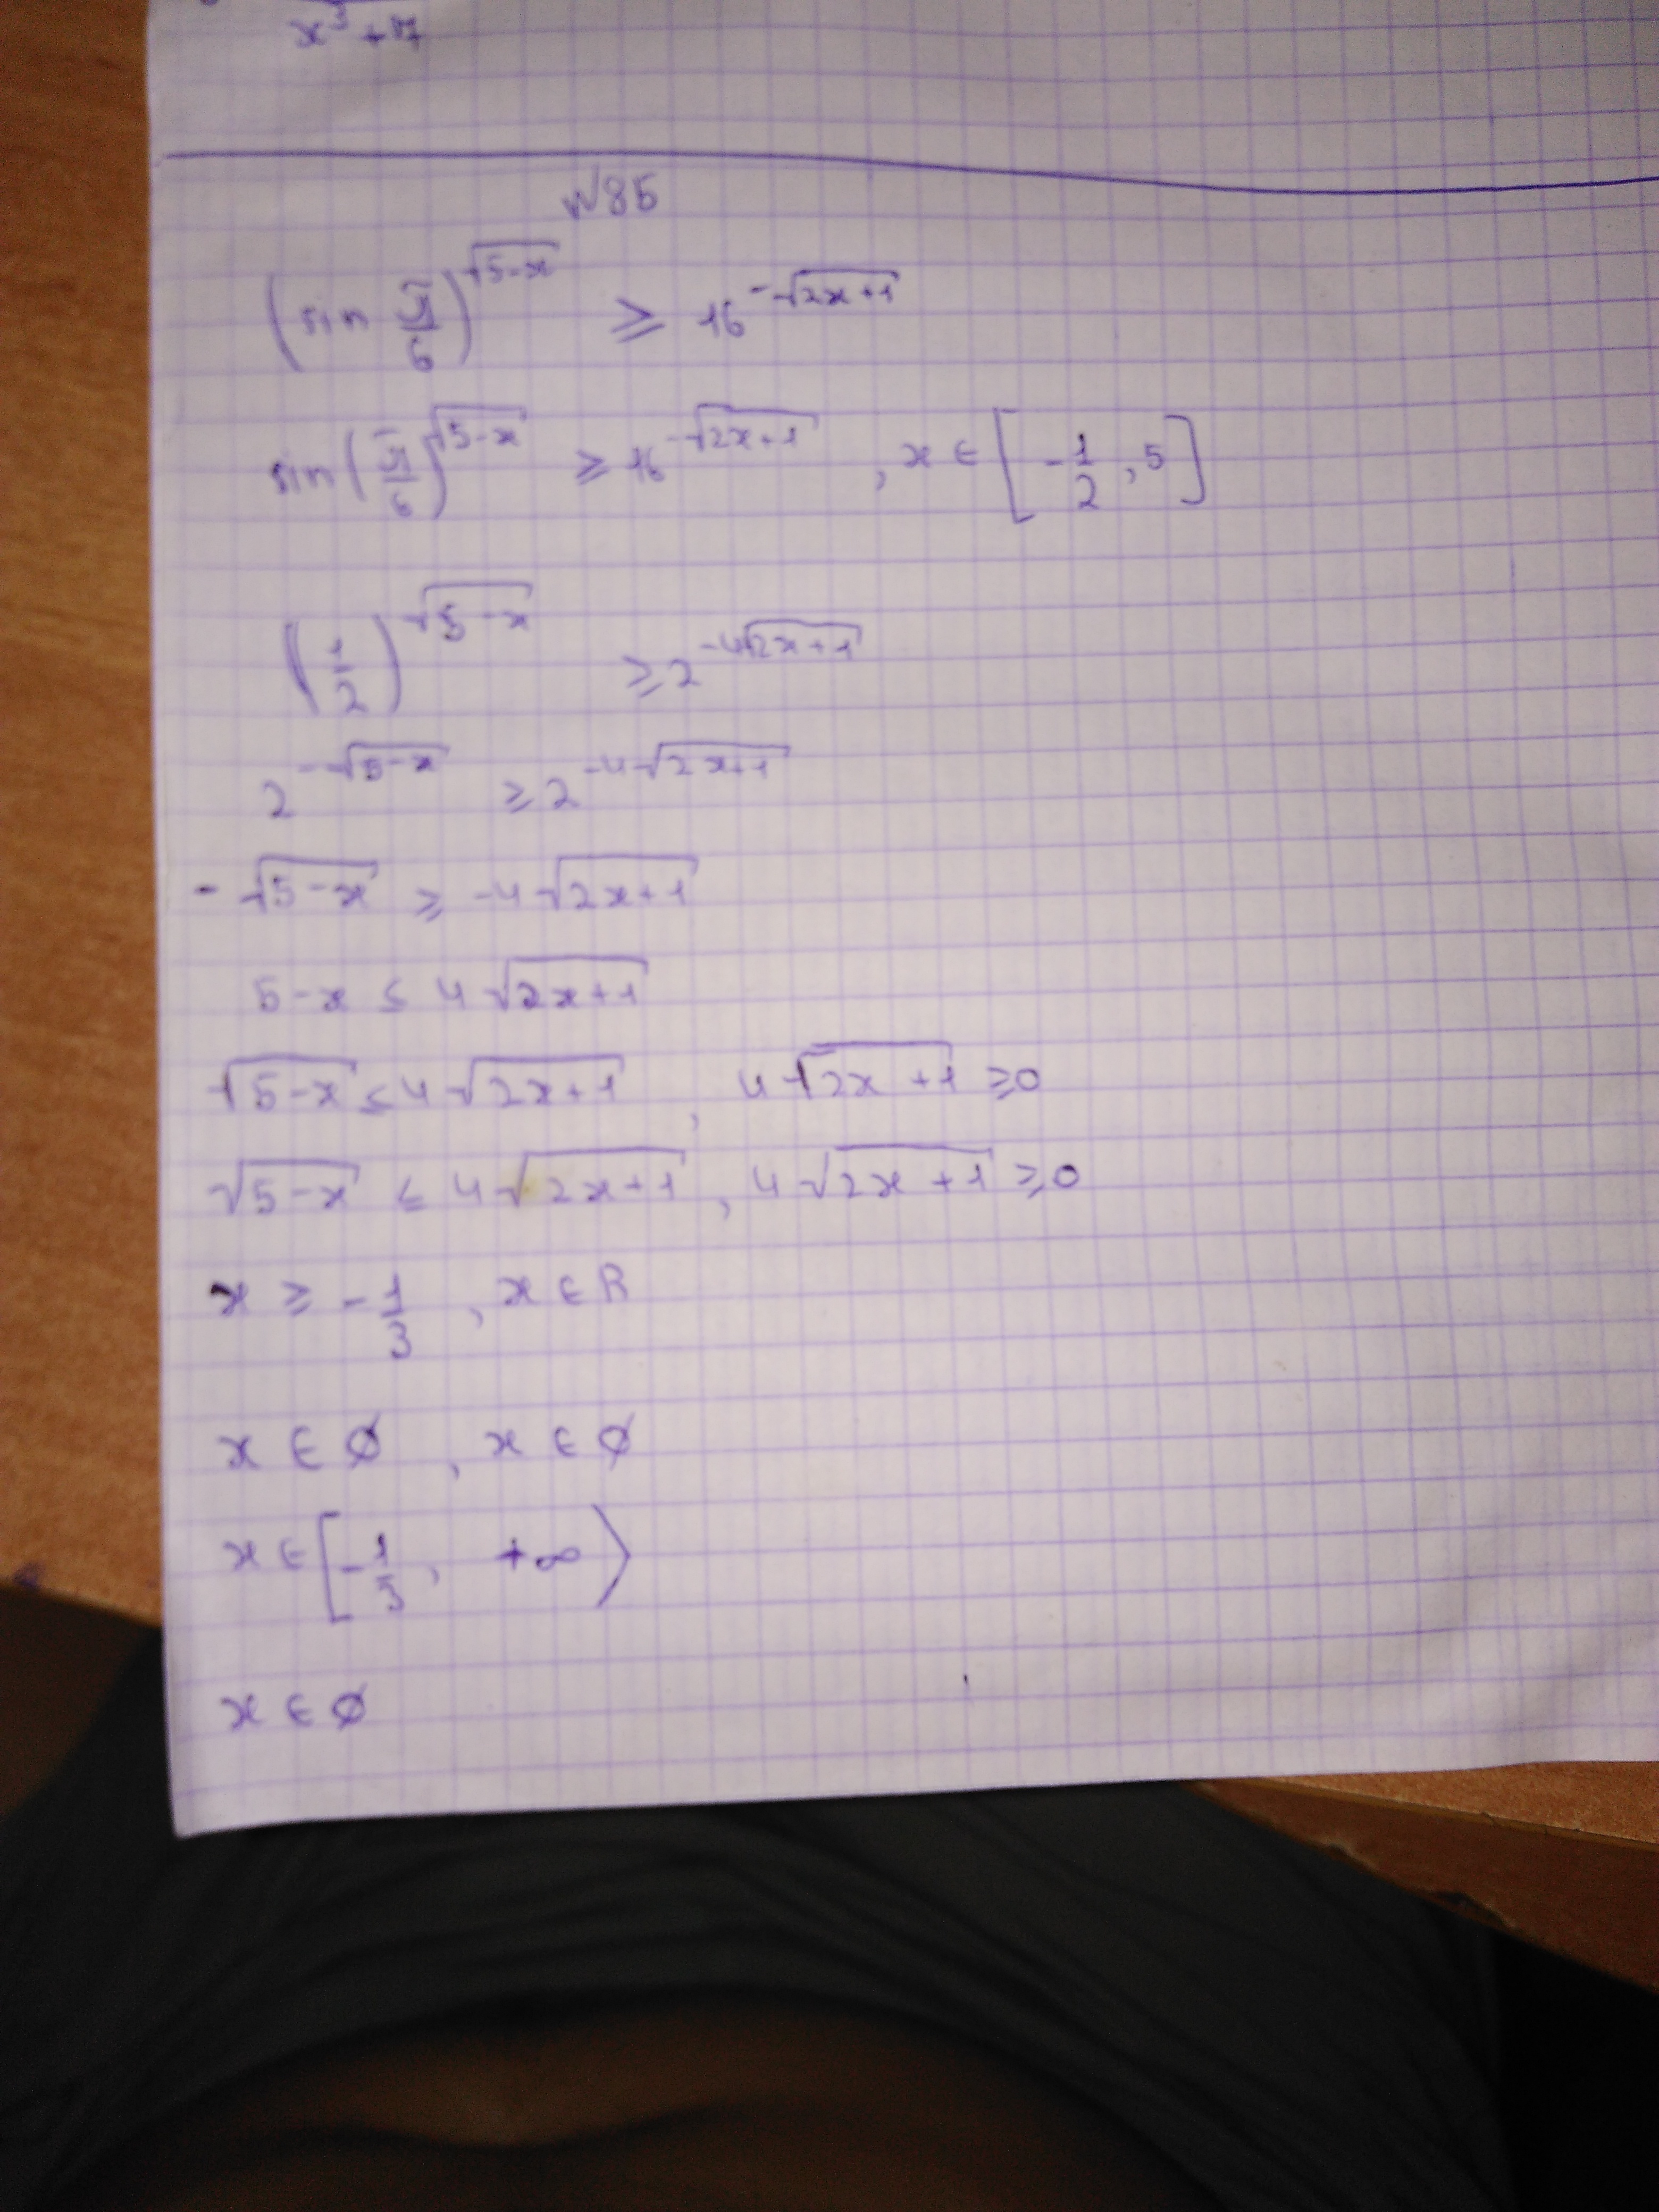 x³+7
N85
(sin π/6)^√(5-x) ≥ 16^-√(2x+1)
sin(π/6)^√(5-x) ≥ 16^-√(2x+1) , x ∈ [-1/2, 5]
(1/2)^√(5-x) ≥ 2^-4√(2x+1)
2^-√(5-x) ≥ 2^-4√(2x+1)
-√(5-x) ≥ -4√(2x+1)
5-x ≤ 4√(2x+1)
√(5-x) ≤ 4√(2x+1) , 4√(2x+1) ≥ 0
√(5-x) ≤ 4√(2x+1) , 4√(2x+1) ≥ 0
x ≥ -1/3 , x ∈ R
x ∈ Ø , x ∈ Ø
x ∈ [-1/3, +∞⟩
x ∈ Ø